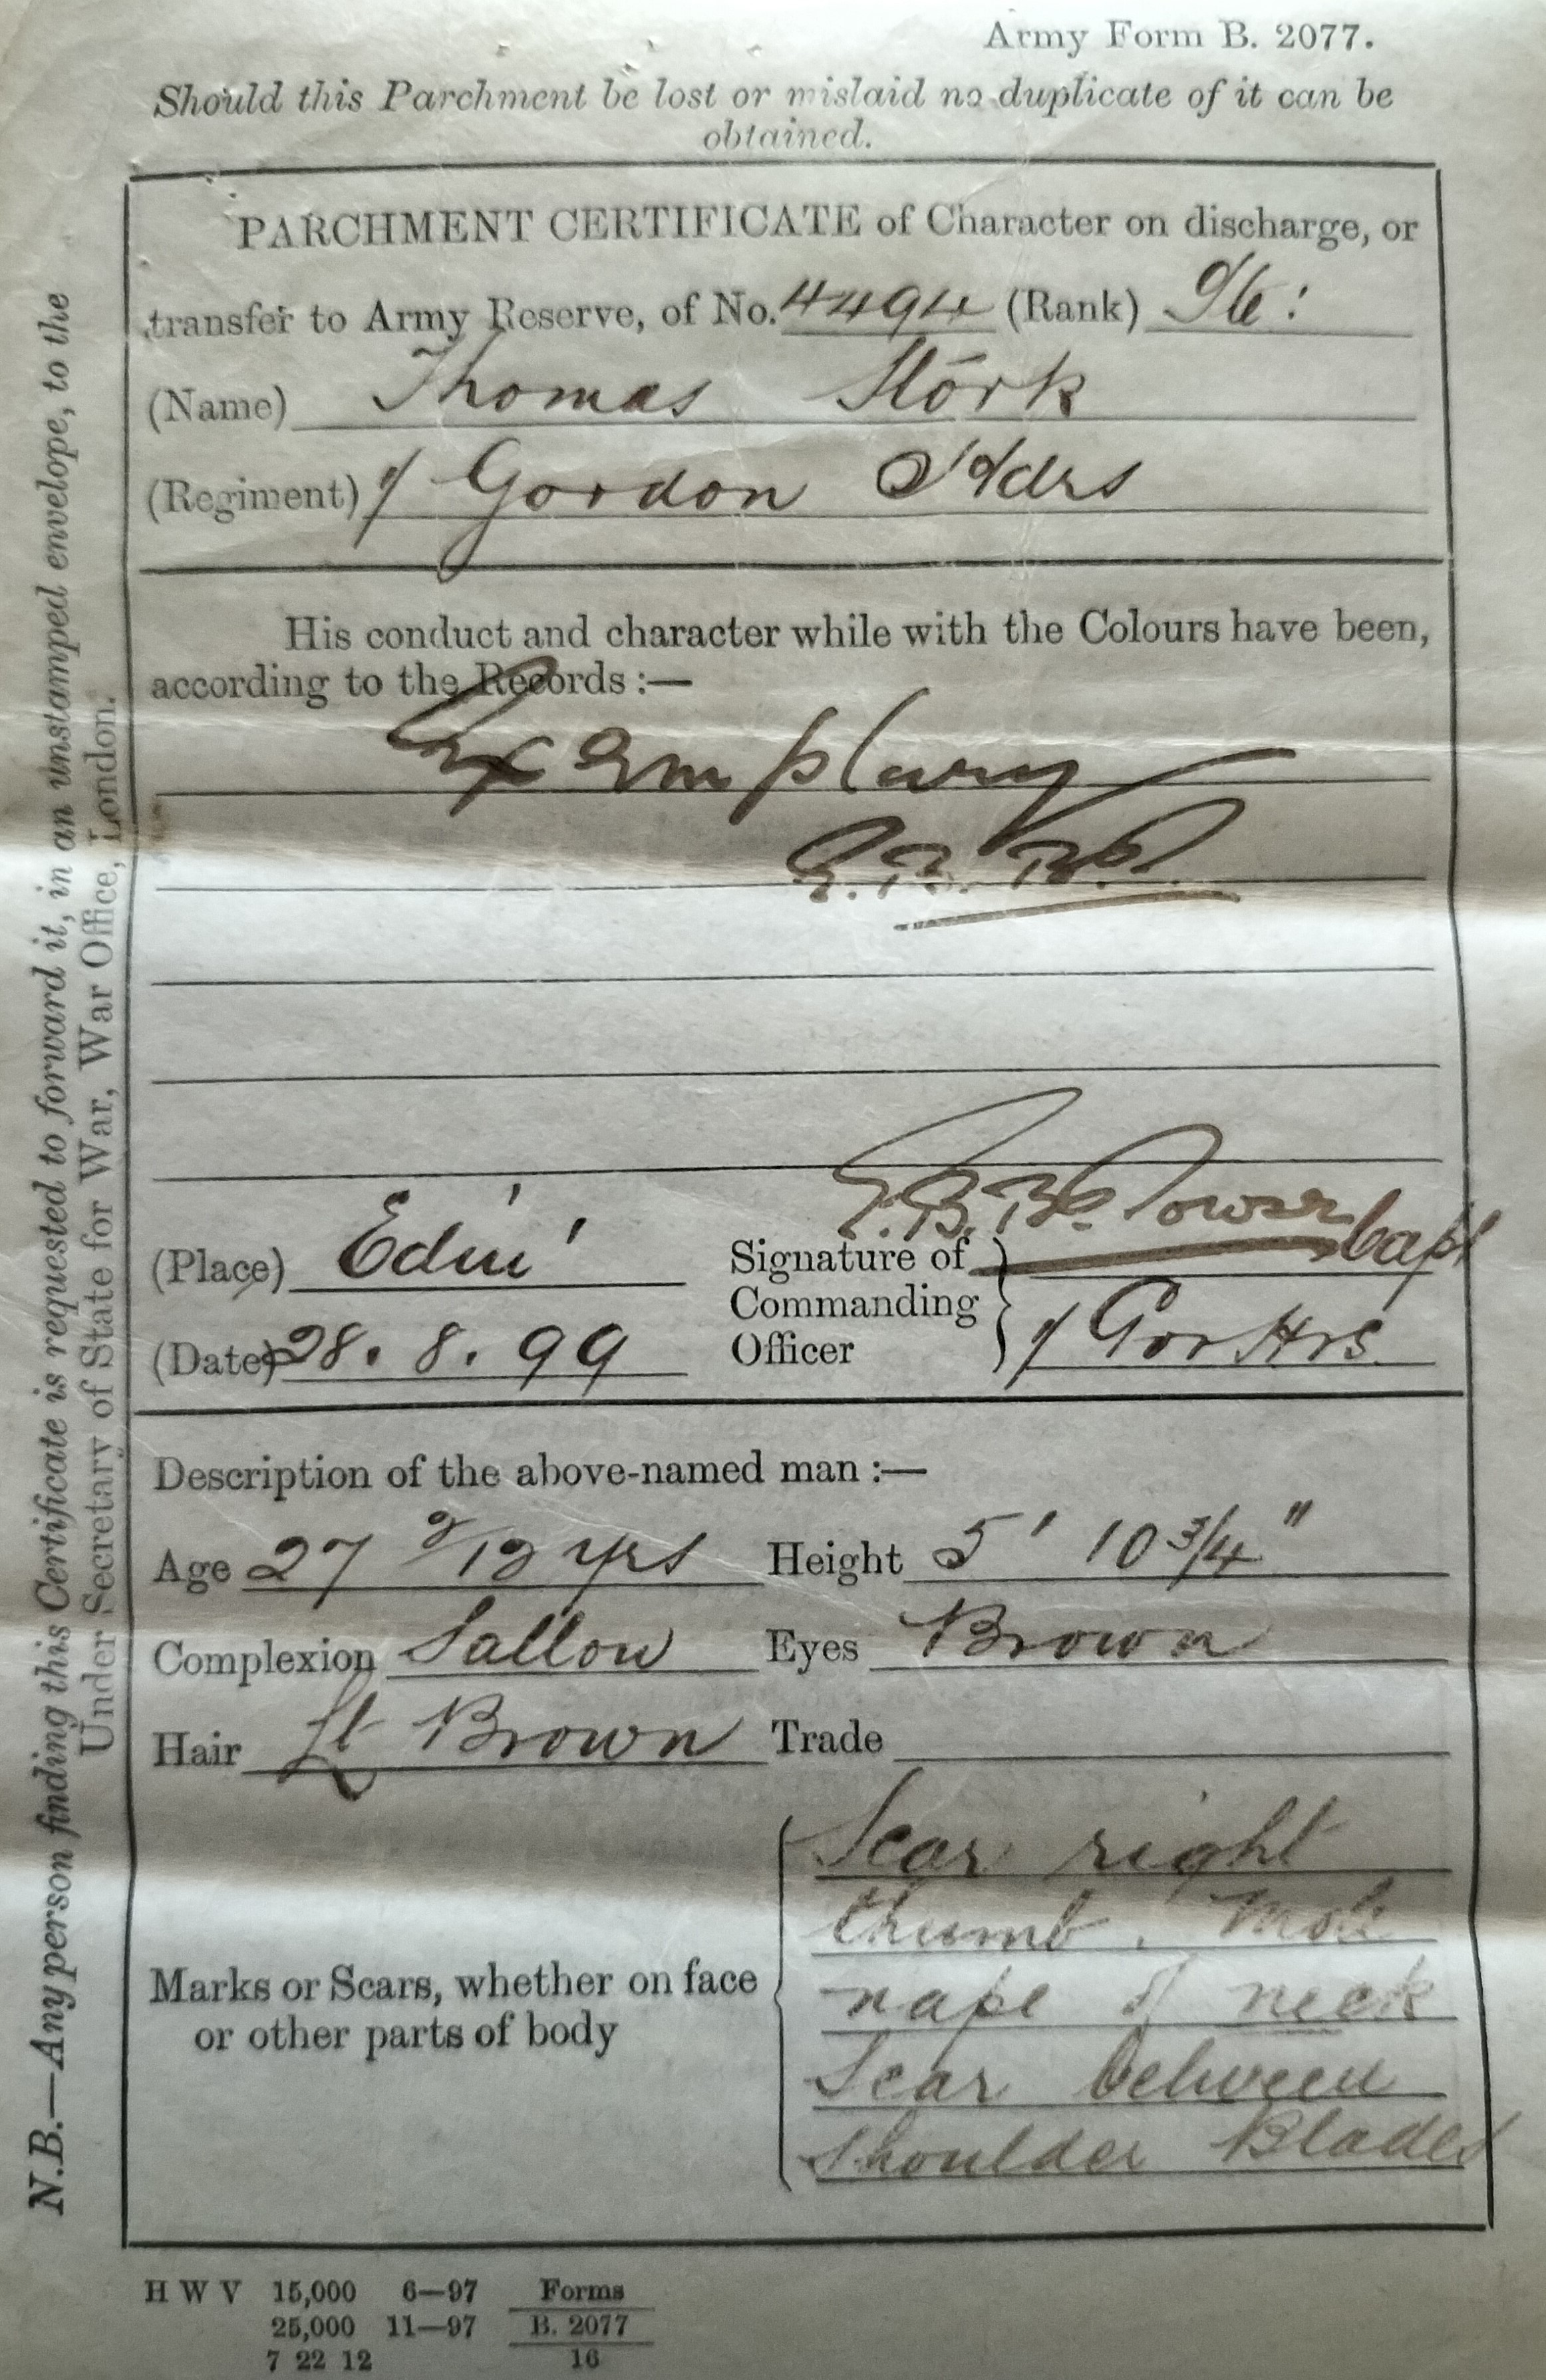 Army Form B. 2077.
Should this Parchment be lost or mislaid no duplicate of it can be
obtained.
PARCHMENT CERTIFICATE of Character on discharge, or
transfer to Army Reserve, of No. 4494 (Rank) Pte:
(Name) Thomas Stork
(Regiment) 1/ Gordon Hdrs
His conduct and character while with the Colours have been,
according to the Records :—
Exemplary
E.B.B.
(Place) Edin'
(Date) 28. 8. 99
Signature of
Commanding
Officer
E.B.B. Towse Capt
1/ Gor Hrs.
Description of the above-named man :—
Age 27 2/12 yrs Height 5' 10 3/4"
Complexion Sallow Eyes Brown
Hair Lt Brown Trade
Marks or Scars, whether on face
or other parts of body
Scar right
thumb. Mole
nape of neck
Scar between
shoulder Blades
H W V 15,000 6—97 Forms
25,000 11—97 B. 2077
7 22 12 16
N.B.—Any person finding this Certificate is requested to forward it, in an unstamped envelope, to the
Under Secretary of State for War, War Office, London.